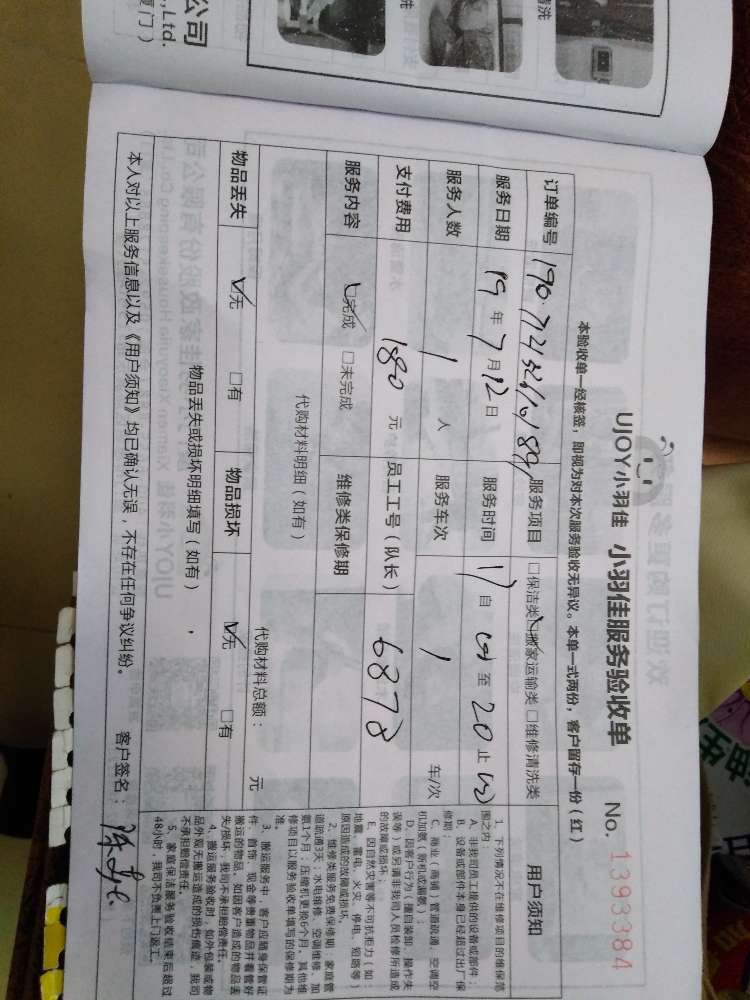 公司
,Ltd.
厦门）
清洗
UJOY小羽佳 小羽佳服务验收单 No. 1393384
本验收单一经核签，即视为对本次服务验收无异议。本单一式两份，客户留存一份（红）
订单编号
服务项目 □保洁类 ☑搬家运输类 □维修清洗类
服务日期 19 年 7 月 12 日
服务时间 自 至 20 止
服务人数 1 人
服务车次 1 车/次
支付费用 180 元
员工工号（队长） 6878
服务内容 ☑完成 □未完成
维修类保修期
代购材料明细（如有）
代购材料总额： 元
物品丢失 ☑无 □有
物品损坏 ☑无 □有
物品丢失或损坏明细填写（如有）
本人对以上服务信息以及《用户须知》均已确认无误，不存在任何争议纠纷。 客户签名：
用户须知
1. 下列情况不在维修项目的维保范
围之内：
A. 非我司员工提供的设备或部件；
B. 设备或部件本身已经超过出厂保
修期；
C. 商业（商铺）管道疏通，空调空
机加氨（新机或漏氨）；
D. 因客户行为（擅自装卸、操作失
误等）或另请非我司人员检修所造成
的故障或损坏；
E. 因自然灾害等不可抗拒力（如：
地震、雷电、火灾、停电、短路等）
原因造成的故障或损坏。
2. 维修类服务免费保修期：家庭管
道疏通3天，水电维修、空调维修、加
氨1个月；压缩机更换6个月。其他维
修项目以服务验收单填写的保修期为
准。
3. 搬运服务中，客户应随身保管证
件、首饰、现金等贵重物品并看管好
搬运的物品，如因客户造成的物品丢
失/损坏，我司不承担赔偿责任。
4. 搬运服务验收时，如外包装或物
品外观无搬运造成的损伤痕迹，我司
不承担赔偿责任。
5. 家庭保洁服务验收结束后超过
48小时，我司不负责上门返工。